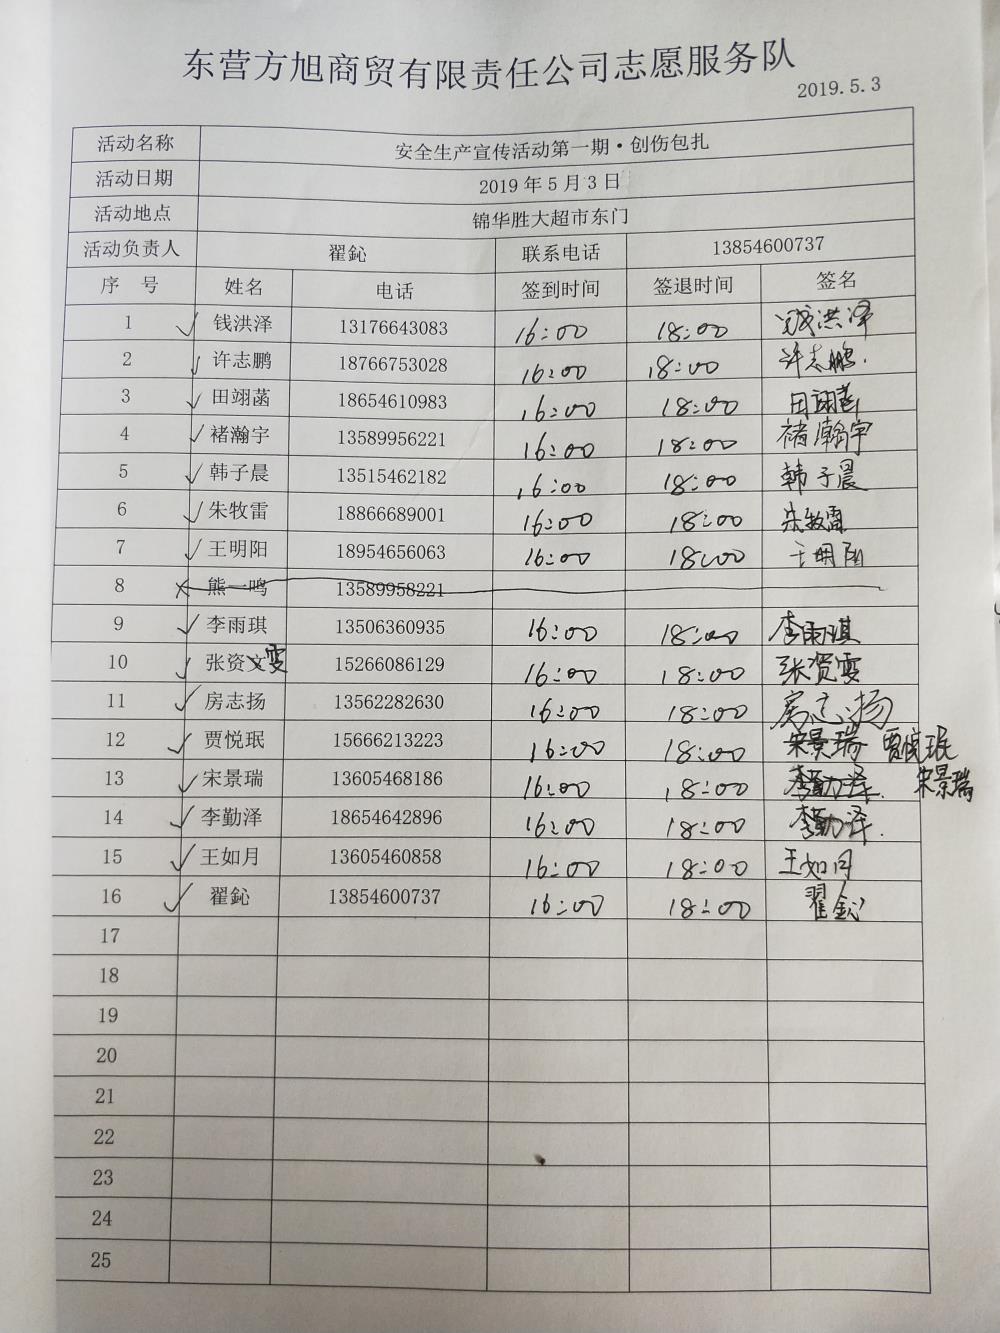 东营方旭商贸有限责任公司志愿服务队
2019.5.3
活动名称 安全生产宣传活动第一期·创伤包扎
活动日期 2019年5月3日
活动地点 锦华胜大超市东门
活动负责人 翟鈊 联系电话 13854600737
序 号 姓名 电话 签到时间 签退时间 签名
1 ✓ 钱洪泽 13176643083 16:00 18:00 钱洪泽
2 ✓ 许志鹏 18766753028 16:00 18:00 许志鹏.
3 ✓ 田翊菡 18654610983 16:00 18:00 田翊菡
4 ✓ 褚瀚宇 13589956221 16:00 18:00 褚瀚宇
5 ✓ 韩子晨 13515462182 16:00 18:00 韩子晨
6 ✓ 朱牧雷 18866689001 16:00 18:00 朱牧雷
7 ✓ 王明阳 18954656063 16:00 18:00 王明阳
8 × 熊一鸣 13589958221
9 ✓ 李雨琪 13506360935 16:00 18:00 李雨琪
10 ✓ 张资文雯 15266086129 16:00 18:00 张资雯
11 ✓ 房志扬 13562282630 16:00 18:00 房志扬
12 ✓ 贾悦珉 15666213223 16:00 18:00 宋景瑞 贾悦珉
13 ✓ 宋景瑞 13605468186 16:00 18:00 李勤泽. 宋景瑞
14 ✓ 李勤泽 18654642896 16:00 18:00 李勤泽.
15 ✓ 王如月 13605460858 16:00 18:00 王如月
16 ✓ 翟鈊 13854600737 16:00 18:00 翟鈊
17
18
19
20
21
22
23
24
25